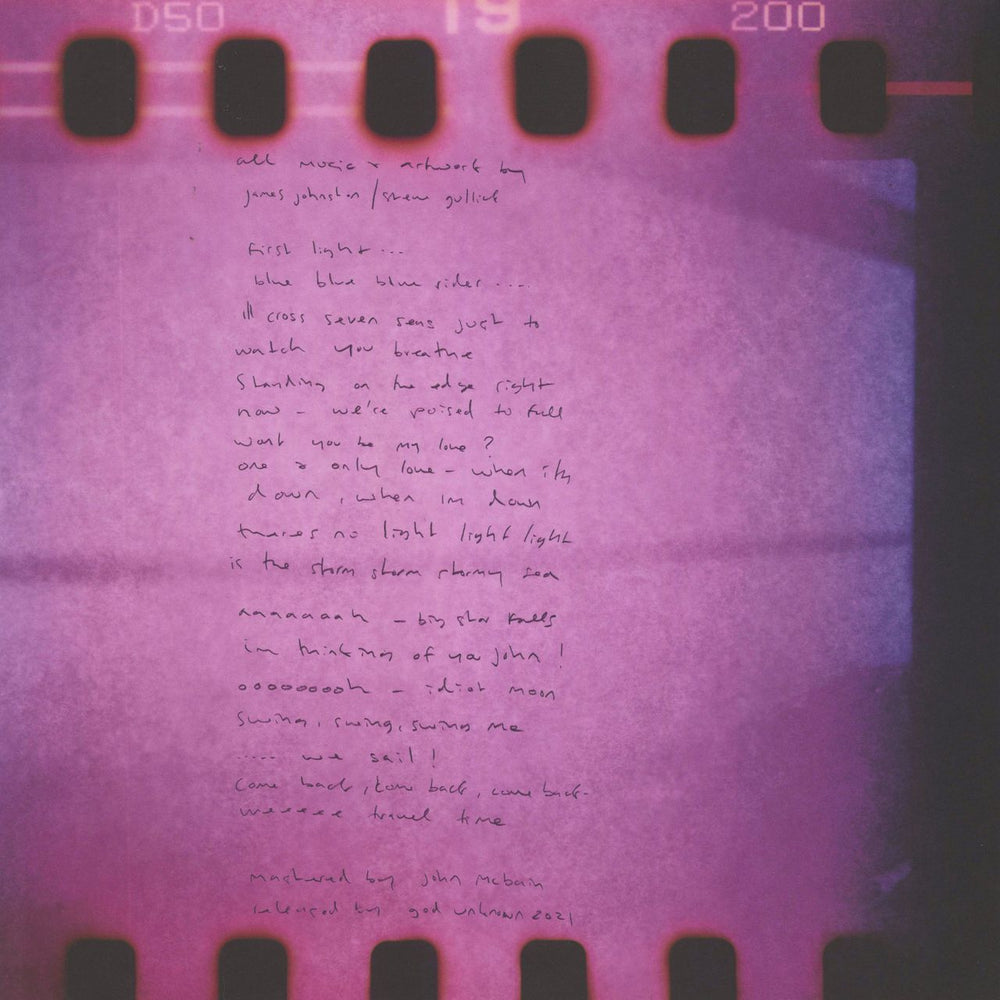 D50 19 200
all music & artwork by
james johnston / steve gullick
first light...
blue blue blue rider ....
ill cross seven seas just to
watch you breathe
Standing on the edge right
now - we're poised to fall
wont you be my love ?
one & only love - when its
down, when im down
theres no light light light
is the storm storm stormy sea
aaaaaaah - big star falls
im thinking of ya john !
ooooooooh - idiot moon
swing, swing, swing me
..... we sail !
Come back, come back, come back-
weeeee travel time
mastered by john mcbain
released by god unknown 2021